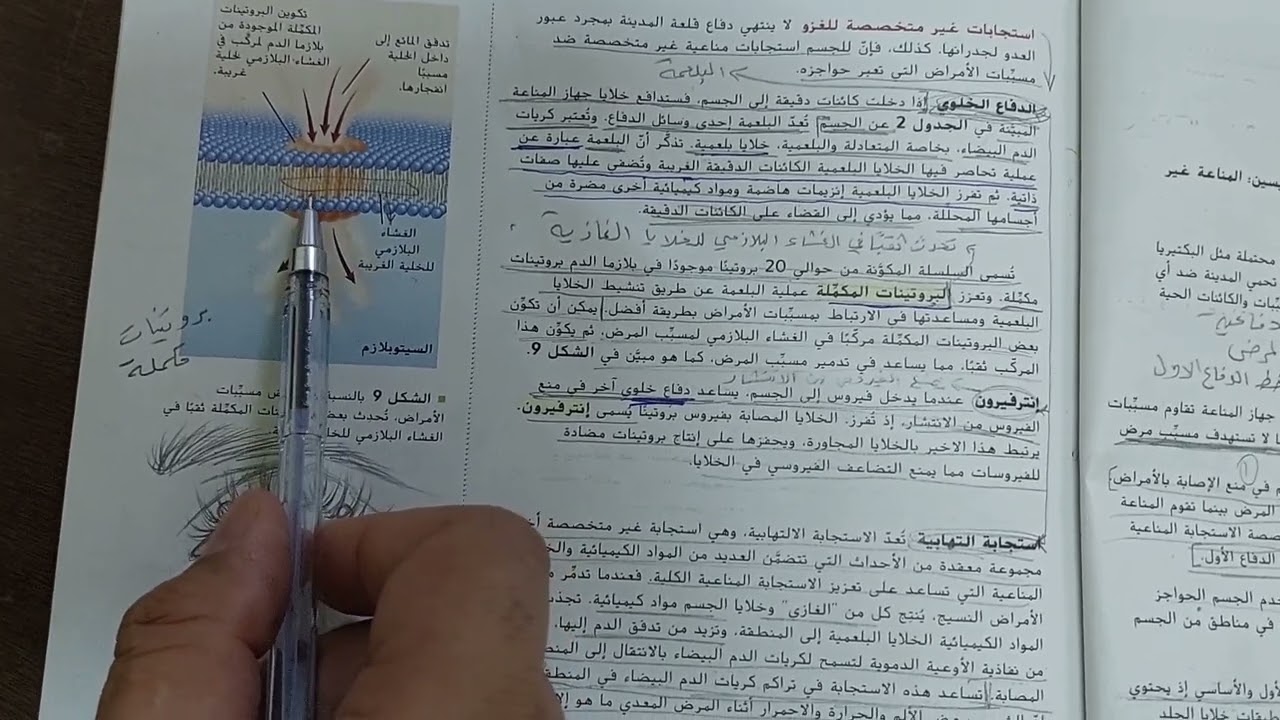 استجابات غير متخصصة للغزو لا ينتهي دفاع قلعة المدينة بمجرد عبور
العدو لجدرانها. كذلك، فإنّ للجسم استجابات مناعية غير متخصصة ضد
مسبّبات الأمراض التي تعبر حواجزه.
البلعمة
الدفاع الخلوي إذا دخلت كائنات دقيقة إلى الجسم، فستدافع خلايا جهاز المناعة
المبيّنة في الجدول 2 عن الجسم. تُعدّ البلعمة إحدى وسائل الدفاع. وتُعتبر كريات
الدم البيضاء، بخاصة المتعادلة والبلعمية، خلايا بلعمية. تذكّر أنّ البلعمة عبارة عن
عملية تحاصر فيها الخلايا البلعمية الكائنات الدقيقة الغريبة وتُضفي عليها صفات
ذاتية. ثم تفرز الخلايا البلعمية إنزيمات هاضمة ومواد كيميائية أخرى مضرة من
أجسامها المحللة، مما يؤدي إلى القضاء على الكائنات الدقيقة.
تحدث ثقبًا في الغشاء البلازمي للخلايا الغازية
تُسمى السلسلة المكوّنة من حوالي 20 بروتينًا موجودًا في بلازما الدم بروتينات
مكمّلة. وتعزز البروتينات المكمّلة عملية البلعمة عن طريق تنشيط الخلايا
البلعمية ومساعدتها في الارتباط بمسبّبات الأمراض بطريقة أفضل. يمكن أن تكوّن
بعض البروتينات المكمّلة مركّبًا في الغشاء البلازمي لمسبّب المرض، ثم يكوّن هذا
المركّب ثقبًا، مما يساعد في تدمير مسبّب المرض، كما هو مبيّن في الشكل 9.
يمنع الفيروس من الانتشار
إنترفيرون عندما يدخل فيروس إلى الجسم، يساعد دفاع خلوي آخر في منع
الفيروس من الانتشار. إذ تُفرز الخلايا المصابة بفيروس بروتينًا يُسمى إنترفيرون.
يرتبط هذا الاخير بالخلايا المجاورة، ويحفزها على إنتاج بروتينات مضادة
للفيروسات مما يمنع التضاعف الفيروسي في الخلايا.
استجابة التهابية تُعدّ الاستجابة الالتهابية، وهي استجابة غير متخصصة
مجموعة معقدة من الأحداث التي تتضمّن العديد من المواد الكيميائية
المناعية التي تساعد على تعزيز الاستجابة المناعية الكلية. فعندما تدمّر
الأمراض النسيج، يُنتج كل من "الغازي" وخلايا الجسم مواد كيميائية. تجذب
المواد الكيميائية الخلايا البلعمية إلى المنطقة، وتزيد من تدفق الدم إليها،
من نفاذية الأوعية الدموية لتسمح لكريات الدم البيضاء بالانتقال إلى
المصابة. تساعد هذه الاستجابة في تراكم كريات الدم البيضاء في
الألم والحرارة والاحمرار أثناء المرض المعدي ما هو
تكوين البروتينات
المكمّلة الموجودة من
بلازما الدم لمركّب في
الغشاء البلازمي لخلية
غريبة.
تدفق المائع إلى
داخل الخلية
مسببًا
انفجارها.
الغشاء
البلازمي
للخلية الغريبة
السيتوبلازم
بروتينات
مكملة
الشكل 9 بالنسبة مسبّبات
الأمراض، تُحدث بعض المكمّلة ثقبًا في
الغشاء البلازمي
المناعة غير
محتملة مثل البكتيريا
تحمي المدينة ضد أي
والكائنات الحية
خط الدفاع الاول
جهاز المناعة تقاوم مسبّبات
لا تستهدف مسبّب مرض
1
في منع الإصابة بالأمراض
المرض بينما تقوم المناعة
الاستجابة المناعية
الدفاع الأول.
الجسم الحواجز
في مناطق من الجسم
والأساسي إذ يحتوي
خلايا الجلد